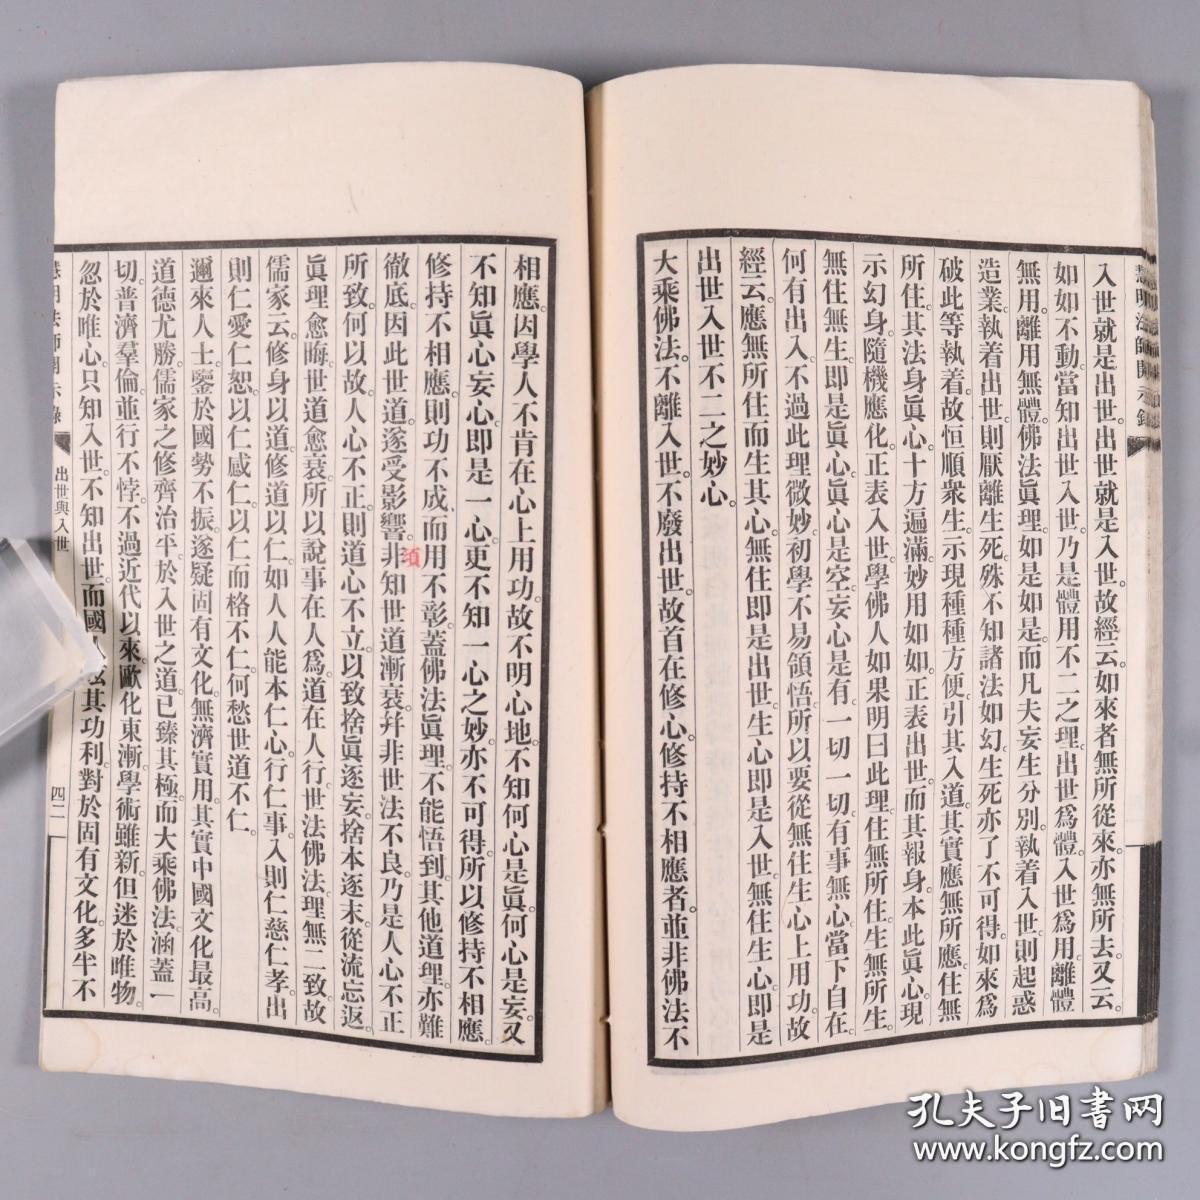 慧明法師開示錄
入世就是出世。出世就是入世。故經云。如來者無所從來。亦無所去。又云。
如如不動。當知出世入世。乃是體用不二之理。出世爲體。入世爲用。離體
無用。離用無體。佛法眞理。如是如是。而凡夫妄生分別。執着入世。則起惑
造業。執着出世。則厭離生死。殊不知諸法如幻。生死亦了不可得。如來爲
破此等執着。故恒順衆生。示現種種方便。引其入道。其實應無所應。住無
所住。其法身眞心。十方遍滿。妙用如如。正表出世。而其報身。本此眞心。現
示幻身。隨機應化。正表入世。學佛人如果明曰此理。住無所住。生無所生。
無住無生。即是眞心。眞心是空。妄心是有。一切一切。有事無心。當下自在。
何有出入。不過此理微妙。初學不易領悟。所以要從無住生心上用功。故
經云。應無所住而生其心。無住即是出世。生心即是入世。無住生心。即是
出世入世不二之妙心。
大乘佛法。不離入世。不廢出世。故首在修心。修持不相應者。並非佛法不
相應。因學人不肯在心上用功。故不明心地。不知何心是眞。何心是妄。又
不知眞心妄心。即是一心。更不知一心之妙。亦不可得。所以修持不相應。
修持不相應。則功不成而用不彰。蓋佛法眞理。不能悟到。其他道理。亦難
徹底。因此世道。遂受影響。非知世道漸衰。幷非世法不良。乃是人心不正
須
所致。何以故。人心不正。則道心不立。以致捨眞逐妄。捨本逐末。從流忘返。
眞理愈晦。世道愈衰。所以說事在人爲。道在人行。世法佛法。理無二致。故
儒家云。修身以道。修道以仁。如人人能本仁心。行仁事。入則仁慈仁孝。出
則仁愛仁恕。以仁感仁。以仁而格不仁。何愁世道不仁。
邇來人士。鑒於國勢不振。遂疑固有文化。無濟實用。其實中國文化最高。
道德尤勝。儒家之修齊治平。於入世之道。已臻其極。而大乘佛法。涵蓋一
切。普濟羣倫。並行不悖。不過近代以來。歐化東漸。學術雖新。但迷於唯物。
忽於唯心。只知入世。不知出世。而國其功利。對於固有文化。多半不
慧明法師開示錄
出世與入世
四二
孔夫子旧书网
www.kongfz.com